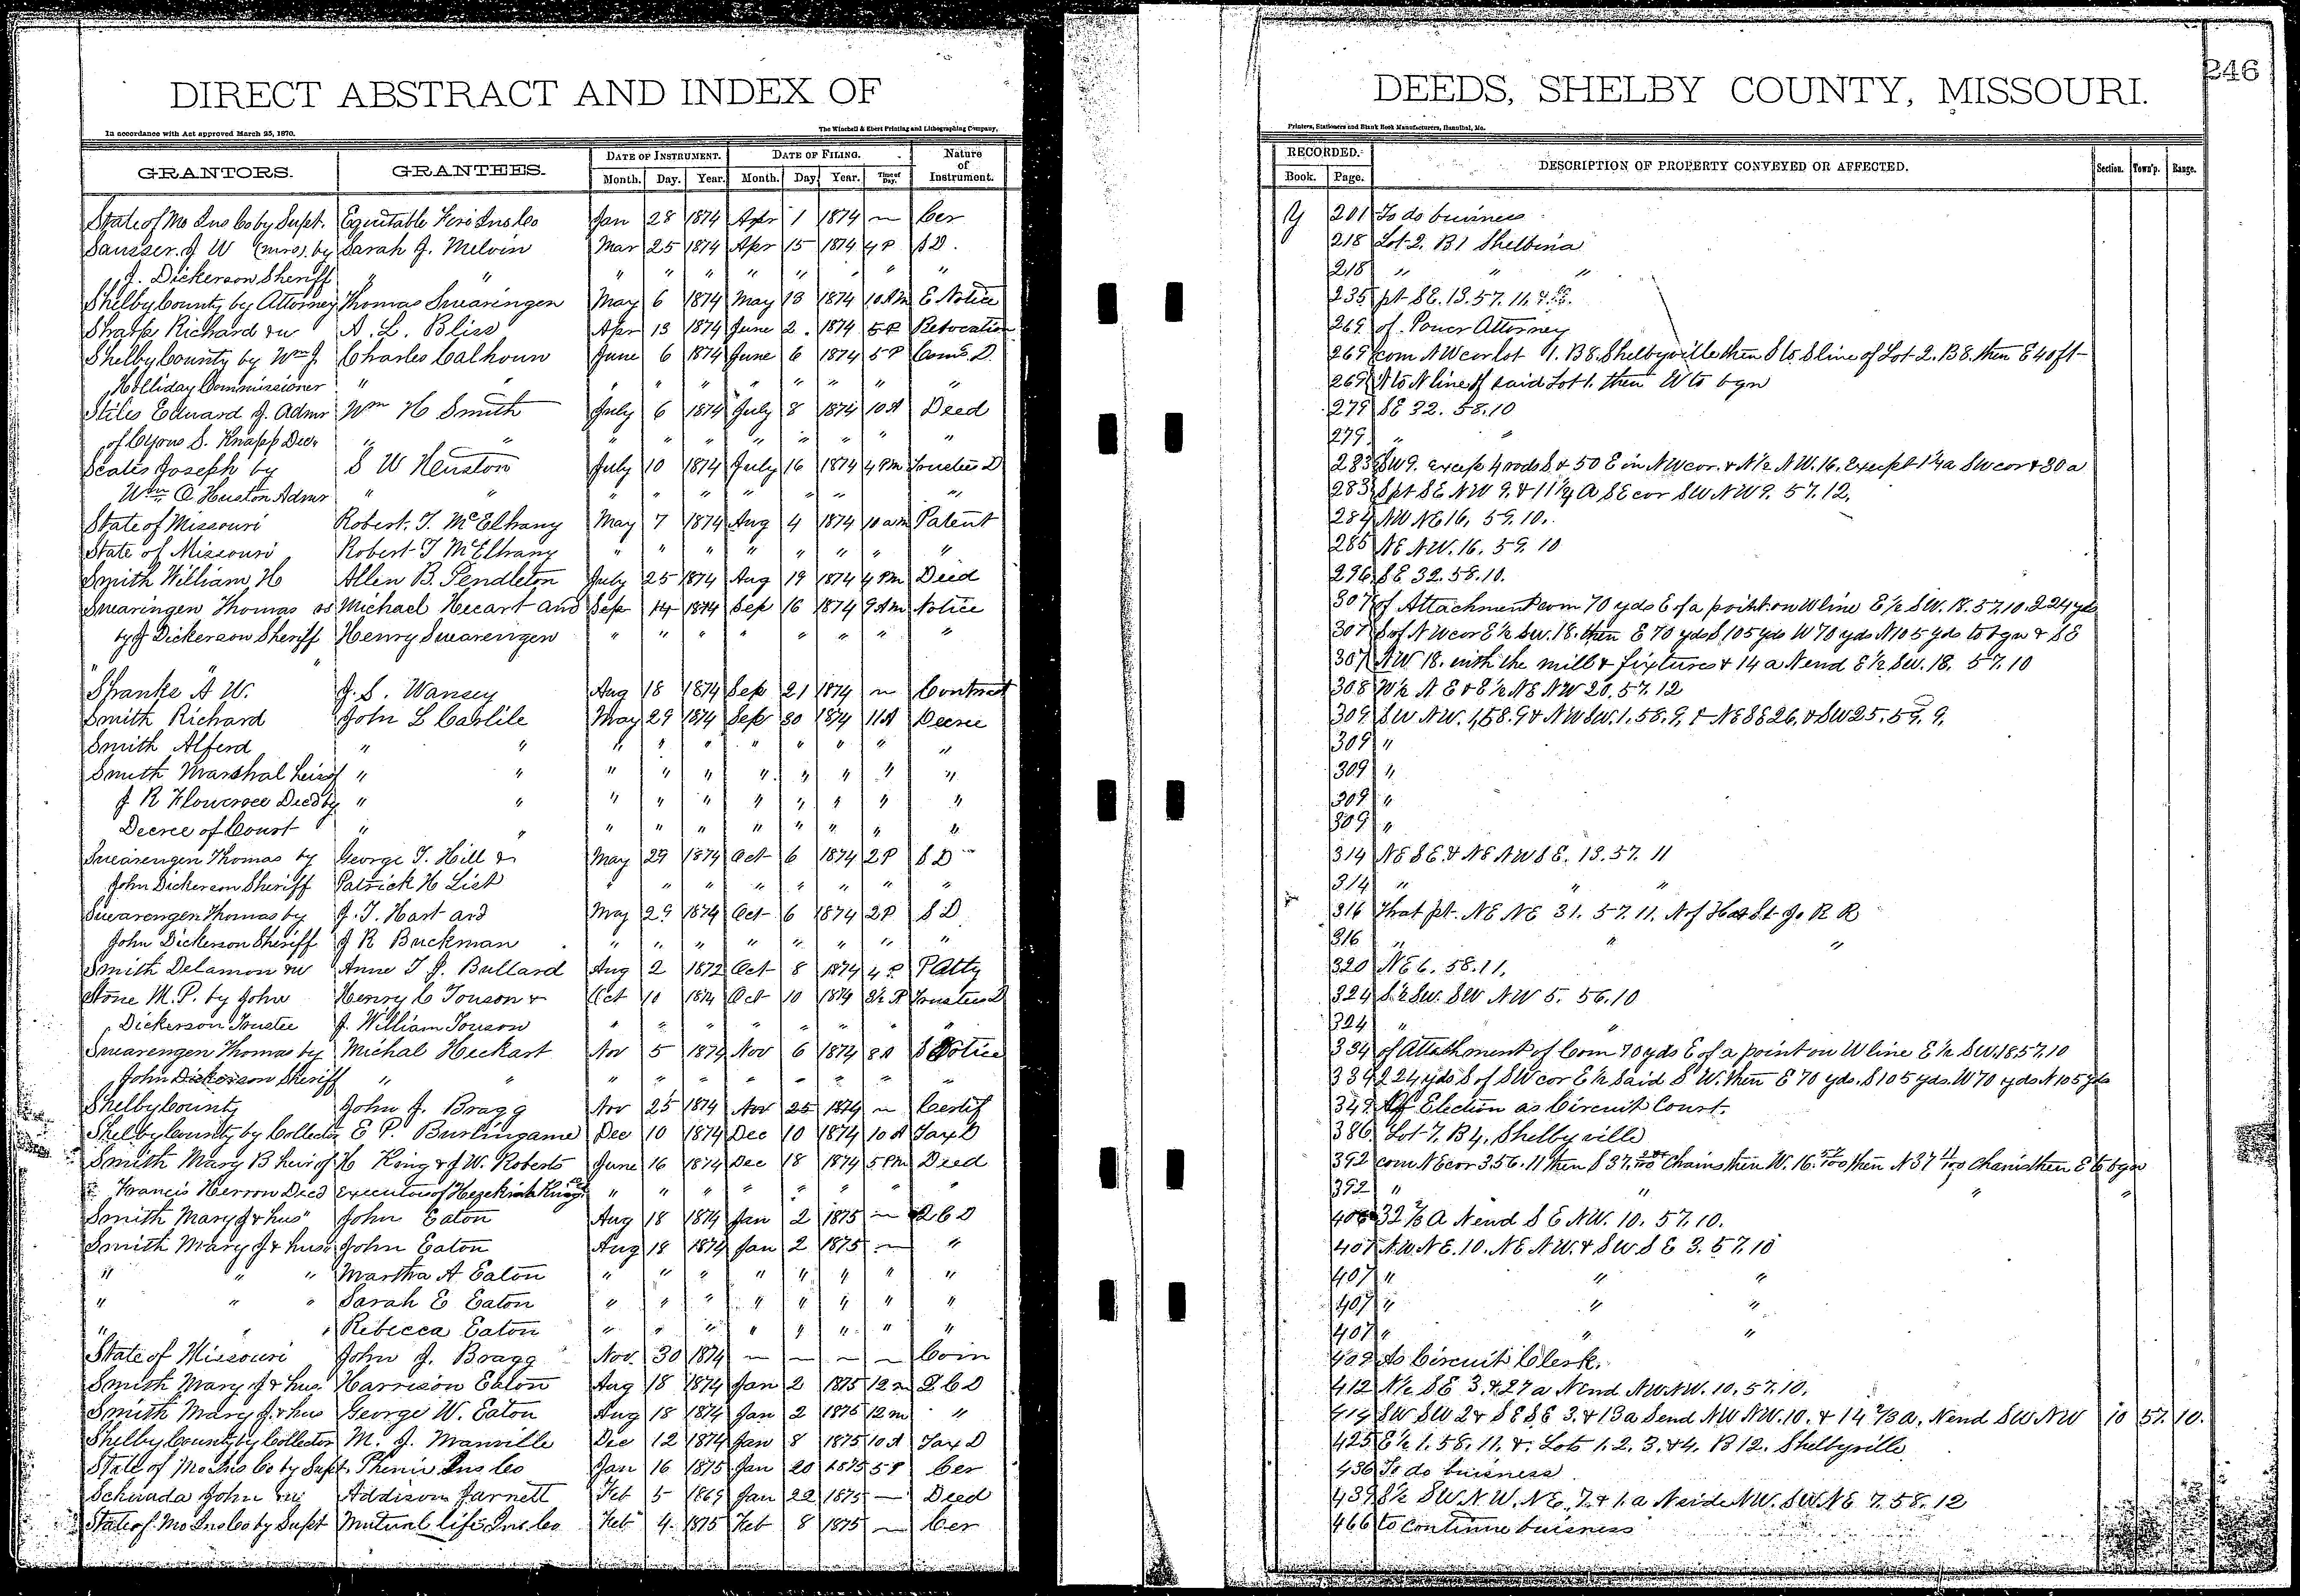 DIRECT ABSTRACT AND INDEX OF
DEEDS, SHELBY COUNTY, MISSOURI.
246
In accordance with Act approved March 25, 1870.
The Winchell & Ebert Printing and Lithographing Company,
Printers, Stationers and Blank Book Manufacturers, Hannibal, Mo.
GRANTORS. GRANTEES. DATE OF INSTRUMENT. DATE OF FILING. Nature of Instrument. RECORDED. DESCRIPTION OF PROPERTY CONVEYED OR AFFECTED. Section. Town'p. Range.
Month. Day. Year. Month. Day. Year. Time of Day. Book. Page.
State of Mo Ins Co by Supt. Equitable Fire Ins Co Jan 28 1874 Apr 1 1874 — Cer Y 201 To do buisness
Sausser. J W (mrs). by Sarah J. Melvin Mar 25 1874 Apr 15 1874 4 P S D. 218 Lot 2. B 1 Shelbina
J. Dickerson Sheriff " " " " " " " " " 218 " " "
Shelby County by Attorney Thomas Swaringen May 6 1874 May 13 1874 10 AM E Notice 235 pt SE. 13. 57. 11. &c.
Sharp Richard & w A. L. Bliss Apr 13 1874 June 2. 1874 5 P Revocation 269 of Power Attorney
Shelby County by Wm J. Charles Calhoun June 6 1874 June 6 1874 5 P Coms D. 269 com NW cor lot 1. B 8. Shelbyville then S to S line of Lot 2. B 8. then E 40 ft
Holliday Commissioner " " " " " " " " " 269 N to N line of said Lot 1. then W to bgn
Stiles Edward J. Admr Wm H Smith July 6 1874 July 8 1874 10 A Deed 279 SE 32. 58. 10
of Cyrus S. Knapp Dec. " " " " " " " " " 279. " "
Scates Joseph by S W Heuston July 10 1874 July 16 1874 4 PM Trustees D 283 SW 9. except 4 rods S. & 50 E in NW cor. & N 1/2 NW. 16. Except 1 1/4 a SW cor & 30 a
Wm O. Huston Admr " " " " " " " " 283 S pt SE NW 9. & 11 1/4 A SE cor SW NW 9. 57. 12.
State of Missouri Robert. T. McElhany May 7 1874 Aug 4 1874 10 am Patent 284 NW NE 16, 59. 10.
State of Missouri Robert T McElhany " " " " " " " " 285 NE NW. 16. 59. 10
Smith William H Allen B. Pendleton July 25 1874 Aug 19 1874 4 PM Deed 296 SE 32. 58. 10.
Swaringen Thomas as Michael Heccart and Sep 14 1874 Sep 16 1874 9 AM Notice 307 of Attachment com 70 yds E of a point on W line E 1/2 SW. 18. 57. 10. 224 yds
by J Dickerson Sheriff Henry Swarengen " " " " " " " " 307 S of NW cor E 1/2 SW. 18. then E 70 yds S 105 yds W 70 yds N 105 yds to bgn & SE
" " 307 NW 18. with the mill & fixtures & 14 a N end E 1/2 SW. 18. 57. 10
Shanke A W. J. S. Wansey Aug 18 1874 Sep 21 1874 — Contract 308 W 1/2 N E & E 1/2 NE NW 20. 57. 12
Smith Richard John L Carlile May 29 1874 Sep 30 1874 11 A Decree 309 SW NW. 1, 58. 9 & NW SW. 1. 58. 9. & NE SE 26. & SW 25. 59. 9.
Smith Alferd " " " " " " " " " " 309 "
Smith Marshal heirs of " " " " " " " " " " 309 "
J R Flowerree Decd by " " " " " " " " " " 309 "
Decree of Court " " " " " " " " " " 309 "
Swarengen Thomas by George T. Hill & May 29 1874 Oct 6 1874 2 P S D 314 NE SE. & NE NW SE. 13. 57. 11
John Dickerson Sheriff Patrick H List " " " " " " " " 314 " " "
Swarengen Thomas by J. T. Hart and May 29 1874 Oct 6 1874 2 P S D 316 That pt. NE NE 31. 57. 11. N of H & St. Jo R R
John Dickerson Sheriff J R Buckman " " " " " " " " 316 " " "
Smith Delamon & w Anne T J. Bullard Aug 2 1872 Oct 8 1874 4 P. P Atty 320 NE 6. 58. 11.
Stone M. P. by John Henry C Touson & Oct 10 1874 Oct 10 1874 3 1/2 P Trustees D 324 S 1/2 SW. SW NW 5. 56. 10
Dickerson Trustee J. William Touson " " " " " " " " 324 " "
Swarengen Thomas by Michal Heckart Nov 5 1874 Nov 6 1874 8 A S Notice 334 of Attachment of Com 70 yds E of a point on W line E 1/2 SW. 18 57. 10
John Dickerson Sheriff " " " " " " " " " " 334 224 yds S of SW cor E 1/2 Said S W. then E 70 yds. S 105 yds. W 70 yds N 105 yds
Shelby County John J. Bragg Nov 25 1874 Nov 25 1874 — Certif 349 Of Election as Circuit Court.
Shelby County by Collector E P. Burlingame Dec 10 1874 Dec 10 1874 10 A Tax D 386 Lot 7. B 4. Shelbyville
Smith Mary B heir of H King & J W. Roberts June 16 1874 Dec 18 1874 5 PM Deed 392 com NE cor 3. 56. 11 then S 37. Chains then W. 16. then N 37 11/100 Chains then E to bgn
Francis Herron Decd Executors of Hezekiah King " " " " " " " " 392 " " " "
Smith Mary J & hus John Eaton Aug 18 1874 Jan 2 1875 — Q C D 406 32 2/3 A N end S E NW. 10. 57. 10.
Smith Mary J & hus John Eaton Aug 18 1874 Jan 2 1875 — " 407 NW. NE. 10. NE NW. & SW SE 3. 57. 10
" " " Martha A Eaton " " " " " " " " 407 " " "
" " " Sarah E Eaton " " " " " " " " 407 " " "
" " " Rebecca Eaton " " " " " " " " 407 " " "
State of Missouri John J. Bragg Nov. 30 1874 — — — — Com 409 As Circuit Clerk.
Smith Mary J & hus. Harrison Eaton Aug 18 1874 Jan 2 1875 12 m Q C D 412 N 1/2 SE 3. & 27 a N end NW. NW. 10. 57. 10.
Smith Mary J. & hus George W. Eaton Aug 18 1874 Jan 2 1875 12 m " 414 SW SW 2 & SE SE 3. & 13 a S end NW NW. 10. & 14 2/3 a. N end SW NW 10 57. 10.
Shelby County by Collector M. J. Manville Dec 12 1874 Jan 8 1875 10 A Tax D 425 E 1/2 1. 58. 11. &. Lots 1. 2. 3. & 4. B 12. Shelbyville
State of Mo Ins Co by Supt. Phenix Ins Co Jan 16 1875 Jan 20 1875 5 P Cer 436 To do buisness
Schwada John Addison Jarnett Feb 5 1869 Jan 22 1875 — Deed 439 S 1/2 SW. NW. NE. 7. & 1. a N side NW. SW. NE 7. 58. 12
State of Mo Ins Co by Supt Mutual life Ins. Co Feb 4. 1875 Feb 8 1875 — Cer 466 to continue buisness